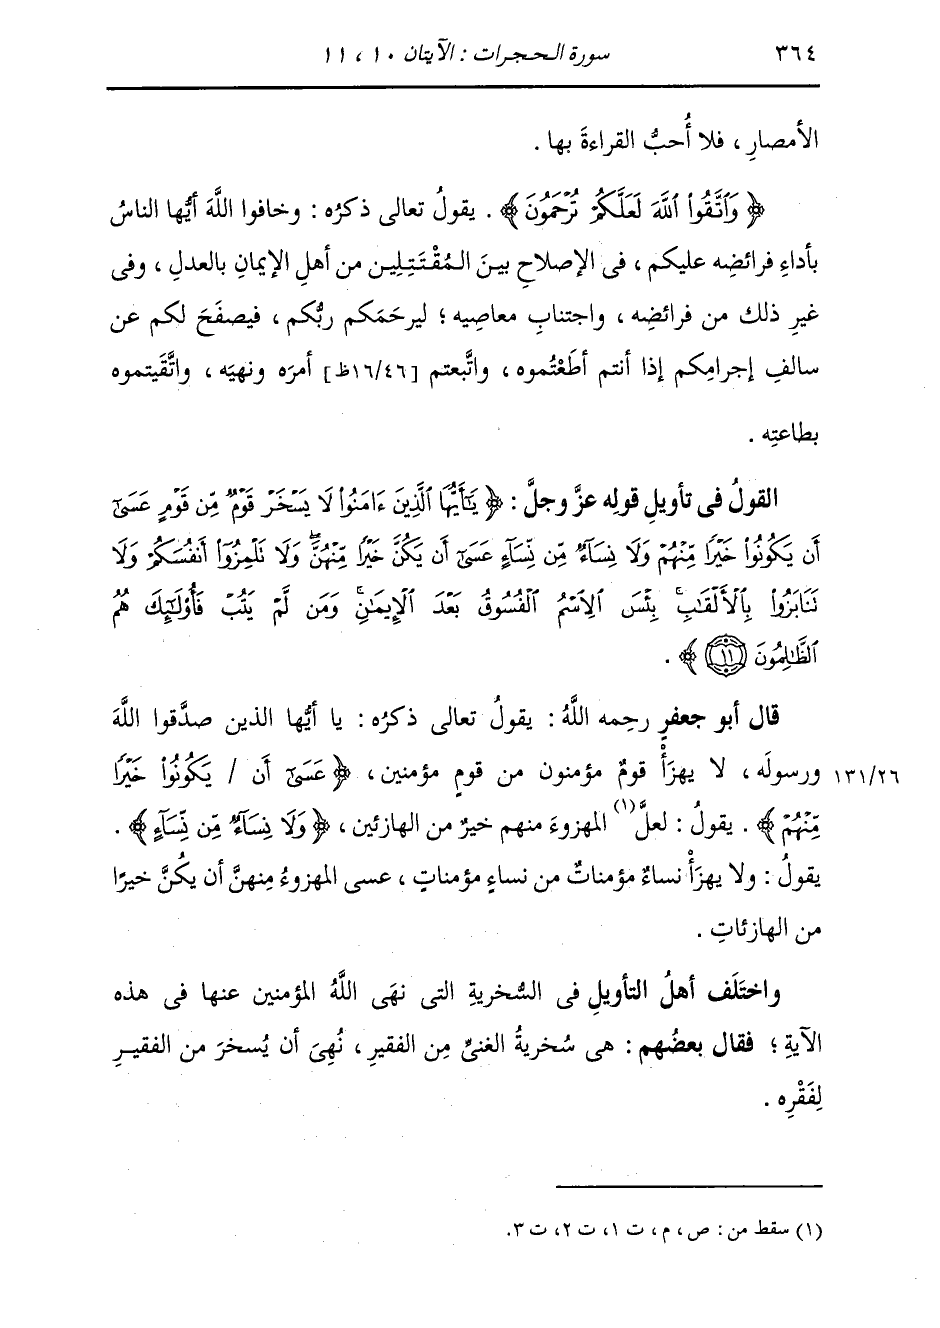 ٣٦٤ سورة الحجرات : الآيتان ١٠ ، ١١
الأمصارِ ، فلا أُحبُّ القراءةَ بها .
﴿ وَٱتَّقُوا۟ ٱللَّهَ لَعَلَّكُمْ تُرْحَمُونَ ﴾ . يقولُ تعالى ذكرُه : وخافوا اللَّهَ أيُّها الناسُ
بأداءِ فرائضِه عليكم ، فى الإصلاحِ بينَ المُقْتَتِلِين من أهلِ الإيمانِ بالعدلِ ، وفى
غيرِ ذلك من فرائضِه ، واجتنابِ معاصِيه ؛ ليرحَمَكم ربُّكم ، فيصفَحَ لكم عن
سالفِ إجرامِكم إذا أنتم أطَعْتُموه ، واتَّبعتم [١٦/٤٦ظ] أمرَه ونهيَه ، واتَّقَيتموه
بطاعتِه .
القولُ فى تأويلِ قولِه عزَّ وجلَّ : ﴿ يَٰٓأَيُّهَا ٱلَّذِينَ ءَامَنُوا۟ لَا يَسْخَرْ قَوْمٌ مِّن قَوْمٍ عَسَىٰٓ
أَن يَكُونُوا۟ خَيْرًا مِّنْهُمْ وَلَا نِسَآءٌ مِّن نِّسَآءٍ عَسَىٰٓ أَن يَكُنَّ خَيْرًا مِّنْهُنَّۖ وَلَا تَلْمِزُوٓا۟ أَنفُسَكُمْ وَلَا
تَنَابَزُوا۟ بِٱلْأَلْقَٰبِۖ بِئْسَ ٱلِٱسْمُ ٱلْفُسُوقُ بَعْدَ ٱلْإِيمَٰنِۚ وَمَن لَّمْ يَتُبْ فَأُو۟لَٰٓئِكَ هُمُ
ٱلظَّٰلِمُونَ ⁧١١⁩ ﴾ .
قال أبو جعفرٍ رحِمه اللَّهُ : يقولُ تعالى ذكرُه : يا أيُّها الذين صدَّقوا اللَّهَ
١٣١/٢٦ ورسولَه ، لا يهزَأْ قومٌ مؤمنون من قومٍ مؤمنين ، ﴿ عَسَىٰٓ أَن / يَكُونُوا۟ خَيْرًا
مِّنْهُمْ ﴾ . يقولُ : لعلَّ(١) المهزوءَ منهم خيرٌ من الهازئين ، ﴿ وَلَا نِسَآءٌ مِّن نِّسَآءٍ ﴾ .
يقولُ : ولا يهزَأْ نساءٌ مؤمناتٌ من نساءٍ مؤمناتٍ ، عسى المهزوءُ مِنهنَّ أن يكُنَّ خيرًا
من الهازئاتِ .
واختَلَف أهلُ التأويلِ فى السُّخريةِ التى نهَى اللَّهُ المؤمنين عنها فى هذه
الآيةِ ؛ فقال بعضُهم : هى سُخريةُ الغنىِّ مِن الفقيرِ ، نُهِىَ أن يُسخرَ من الفقيرِ
لِفَقْرِه .
(١) سقط من : ص ، م ، ت ١، ت ٢، ت ٣.